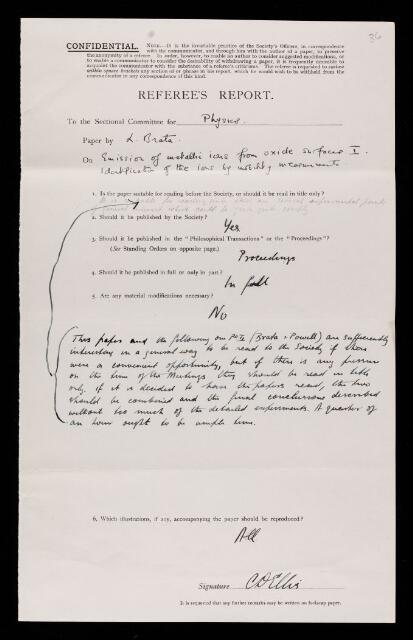 36
CONFIDENTIAL. NOTE.—It is the invariable practice of the Society's Officers, in correspondence
with the communicator, and through him with the author of a paper, to preserve
the anonymity of a referee. In order, however, to enable an author to consider suggested modifications, or
to enable a communicator to consider the desirability of withdrawing a paper, it is frequently necessary to
acquaint the communicator with the substance of a referee's criticisms. The referee is requested to
within square brackets any section of or phrase in his report, which he would wish to be withheld from the
communicator in any correspondence of this kind.
REFEREE'S REPORT.
To the Sectional Committee for Physics.
Paper by L. Brata.
On Emission of metallic ions from oxide surfaces I.
Identification of the ions by mobility measurements
1. Is the paper suitable for reading before the Society, or should it be read in title only?
2. Should it be published by the Society?
Yes
3. Should it be published in the "Philosophical Transactions" or the "Proceedings"?
(See Standing Orders on opposite page.)
Proceedings
4. Should it be published in full or only in part?
In full
5. Are any material modifications necessary?
No
This paper and the following one Pt II (Brata & Powell) are sufficiently
interesting in a general way to be read to the Society if there
were a convenient opportunity, but if there is any pressure
on the time of the Meetings they should be read in title
only. If it is decided to have the papers read, the two
should be combined and the final conclusions described
without too much of the detailed experiments. A quarter of
an hour ought to be ample time.
6. Which illustrations, if any, accompanying the paper should be reproduced?
All
Signature CD Ellis
It is requested that any further remarks may be written on foolscap paper.